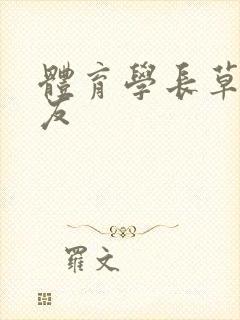 體育學長草
友
羅文